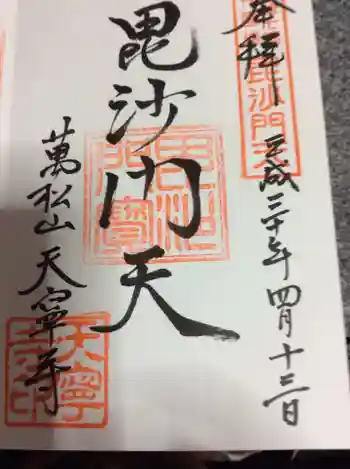 奉拝
平成三十年四月十三日
毘沙門天
萬松山天寧寺